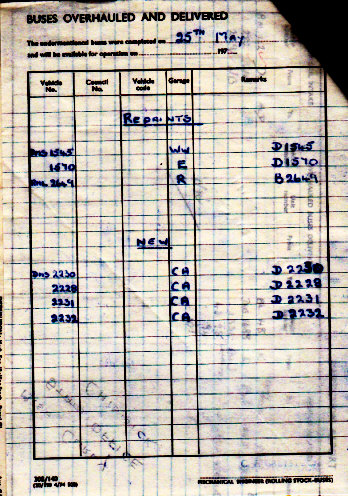 BUSES OVERHAULED AND DELIVERED
The undermentioned buses were completed on 25TH May
and will be available for operation on 197
Vehicle No. Council No. Vehicle code Garage Remarks
REPAINTS
DMS 1545 WW D1545
1570 E D1570
RML 2649 R B2649
NEW
DMS 2230 CA D 2230
2228 CA D 2228
2231 CA D 2231
2232 CA D 2232
MECHANICAL ENGINEER (ROLLING STOCK-BUSES)